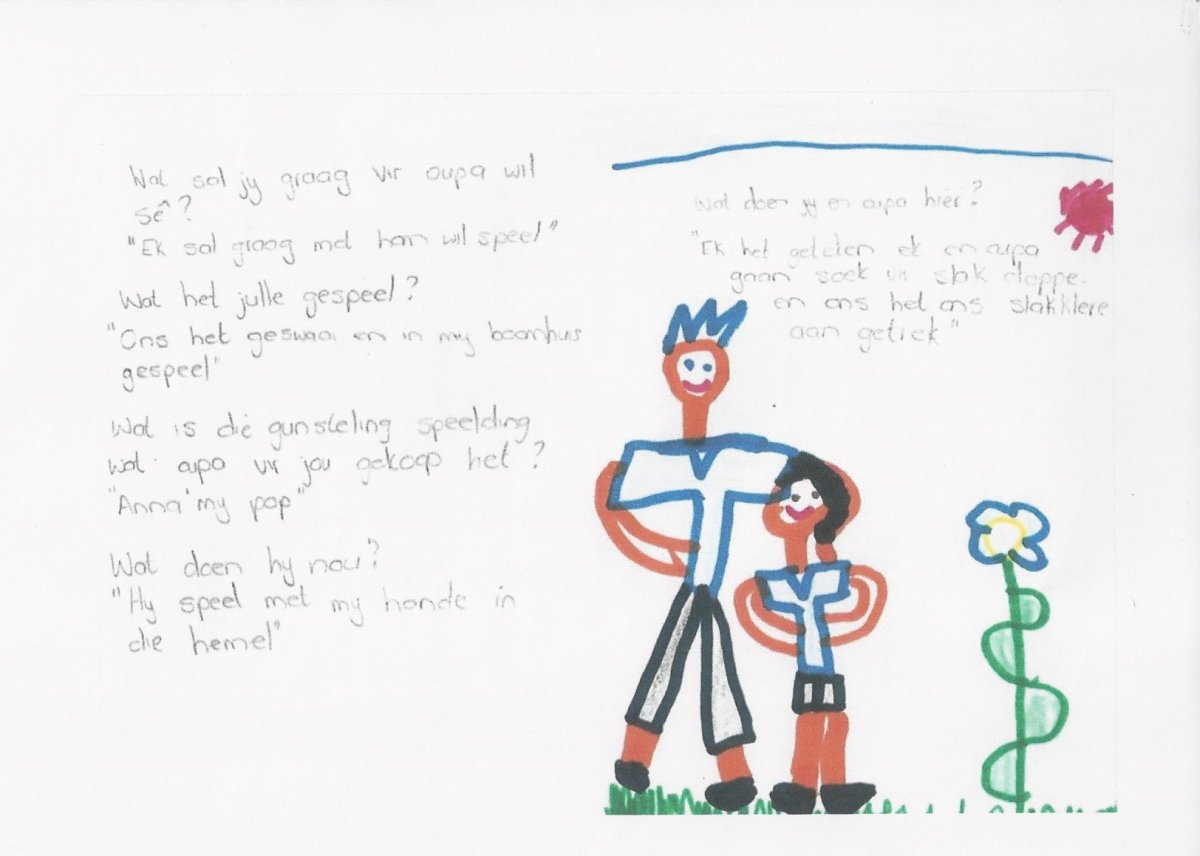 Wat sal jy graag vir oupa wil
sê?
"Ek sal graag met hom wil speel"
Wat het julle gespeel?
"Ons het geswaai en in my boomhuis
gespeel"
Wat is die gunsteling speelding
wat oupa vir jou gekoop het?
"Anna" my pop"
Wat doen hy nou?
"Hy speel met my honde in
die hemel"
Wat doen jy en oupa hier?
"Ek het geteken ek en oupa
gaan soek vir slak doppe.
en ons het ons slakklere
aan getrek"